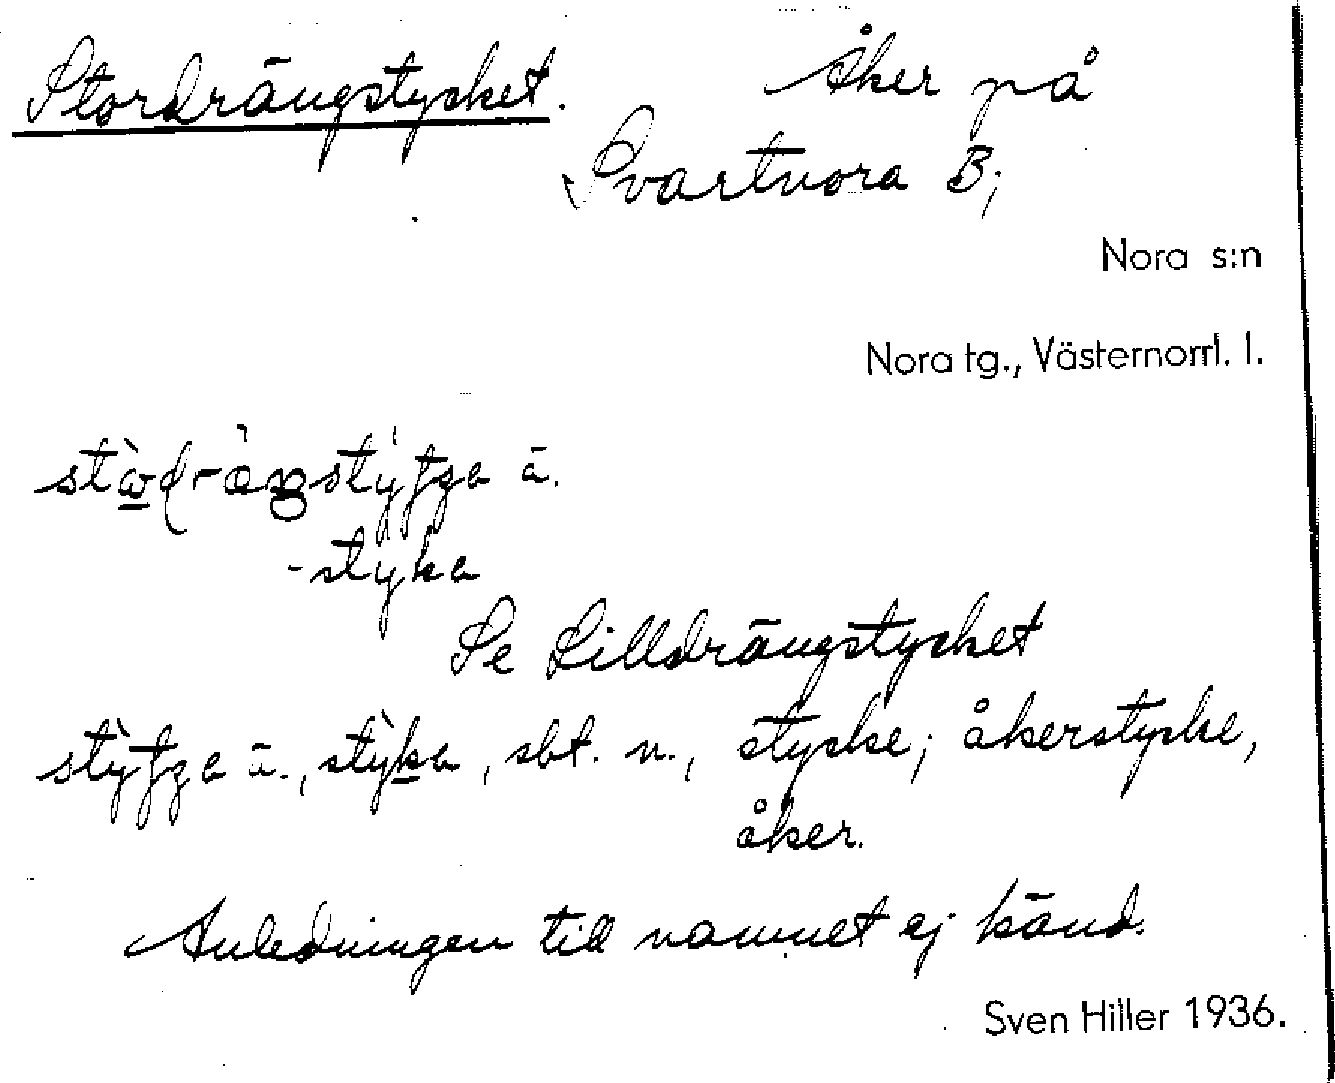 Stordrängstycket. Åker på
Svartnora B;
Nora s:n
Nora tg., Västernorrl. l.
ä.
-styka
Se Lilldrängstycket
ä., styka, sbt. n., stycke; åkerstycke,
åker.
Anledningen till namnet ej känd.
Sven Hiller 1936.